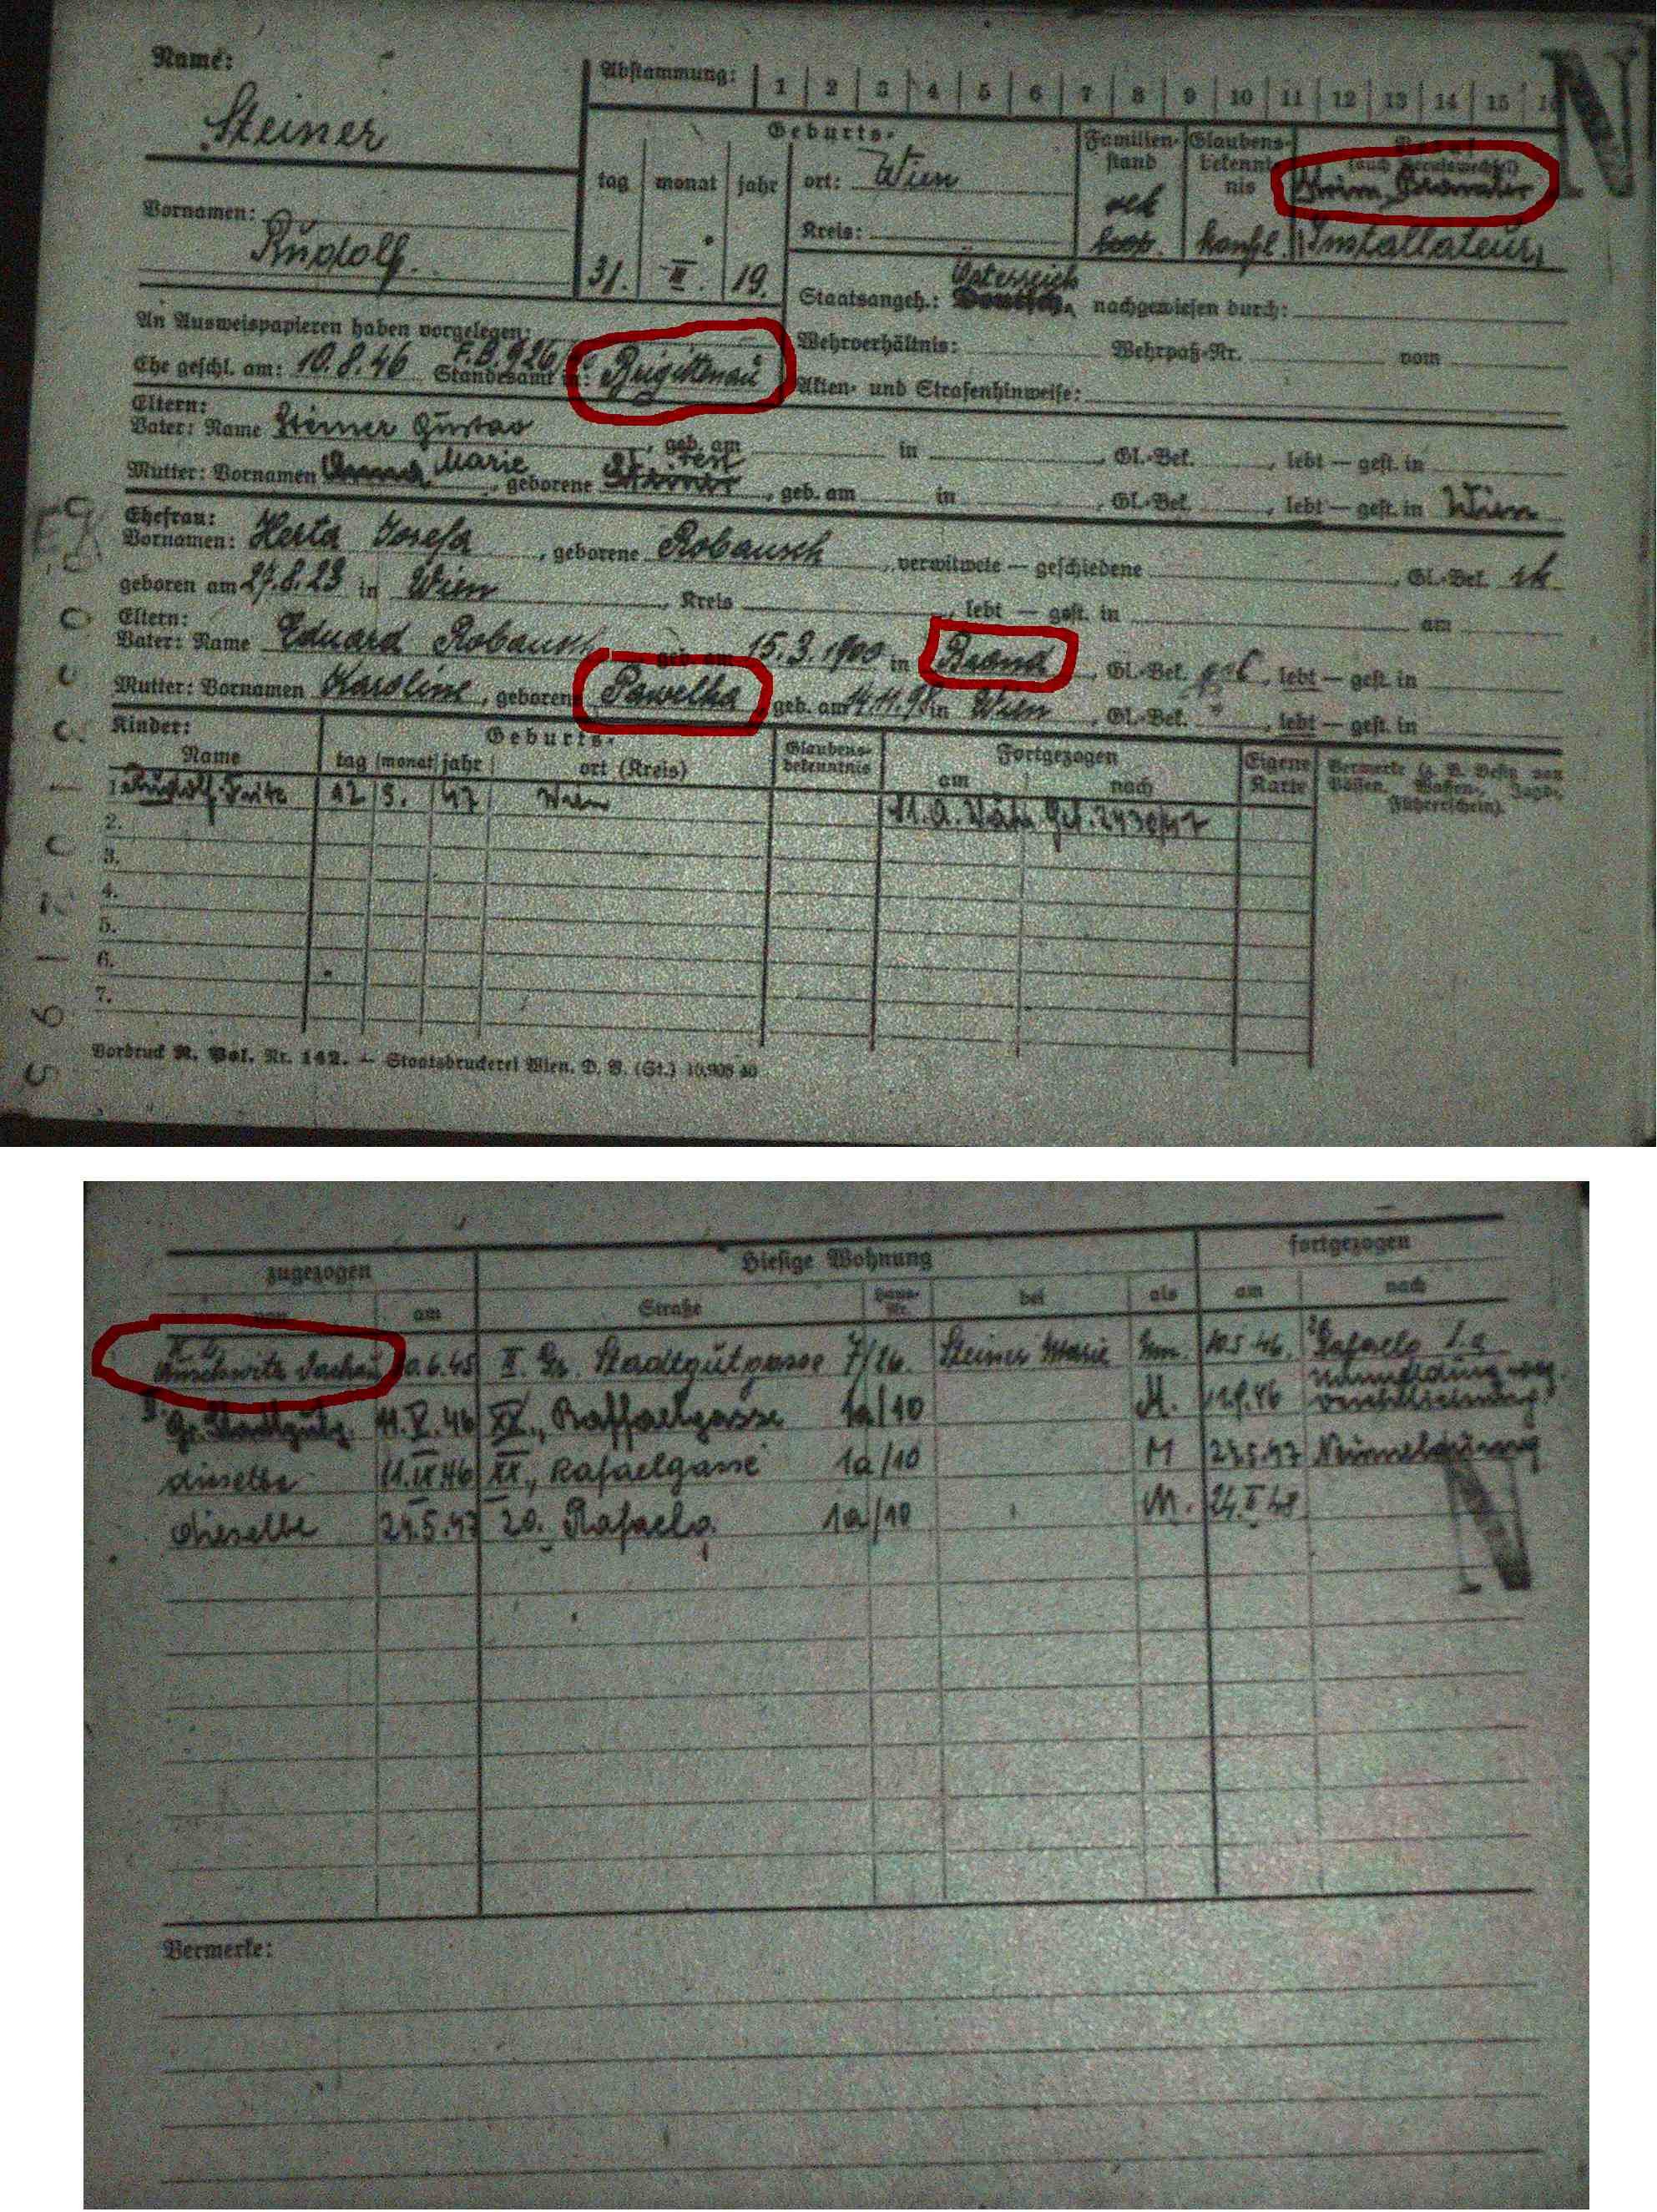 Name:
Steiner
Abstammung: 1 2 3 4 5 6 7 8 9 10 11 12 13 14 15 16
N
Geburts-
tag monat jahr
31. III. 19.
ort: Wien
Kreis:
Familien-
stand
Glaubens-
bekennt-
nis
konfl.
Beruf
(auch Berufswechsel)
Installateur
Vornamen:
Rudolf
Österreich
Staatsangeh.: nachgewiesen durch:
An Ausweispapieren haben vorgelegen:
Wehrverhältnis: Wehrpaß-Nr. vom
Ehe geschl. am: 10.8.46 Standesamt in: Brigittenau
Akten- und Strafenhinweise:
Eltern:
Vater: Name Steiner Gustav, geb. am in, Gl.-Bek., lebt — gest. in
Mutter: Vornamen Marie, geborene, geb. am in, Gl.-Bek., lebt — gest. in Wien
Ehefrau:
Vornamen: Herta Josefa, geborene Robausch, verwitwete — geschiedene, Gl.-Bek. rk
geboren am 27.8.23 in Wien, Kreis, lebt — gest. in am
Eltern:
Vater: Name Eduard Robausch geb. am 15.3.1900 in Brand, Gl.-Bek., lebt — gest. in
Mutter: Vornamen Karoline, geborene Pawelka, geb. am 14.11.98 in Wien, Gl.-Bek. ", lebt — gest. in
Kinder:
Name
Geburts-
tag monat jahr ort (Kreis)
Glaubens-
bekenntnis
Fortgezogen
am nach
Eigene
Karte
Vermerke (z. B. Besitz von
Pässen, Waffen-, Jagd-,
Führerschein).
1. Rudolf Fritz 12 5. 47 Wien
2.
3.
4.
5.
6.
7.
Vordruck R. Pol. Nr. 142. — Staatsdruckerei Wien. D. B. (St.) 10.908 40
zugezogen Hiesige Wohnung fortgezogen
von am Straße Haus-Nr. bei als am nach
Auschwitz Dachau 10.6.45 II. Gr. Stadtgutgasse 7/26. Steiner Marie 10.5.46.
Gr. Stadtgutg. 11.V.46 XX., Raffaelgasse 1a/10 M.
dieselbe 11.IX.46 XX., Rafaelgasse 1a/10 M 23.5.47 Neuanmeldung
dieselbe 24.5.47 20. Rafaelg. 1a/10 M. 24.II 48
N
Vermerke: